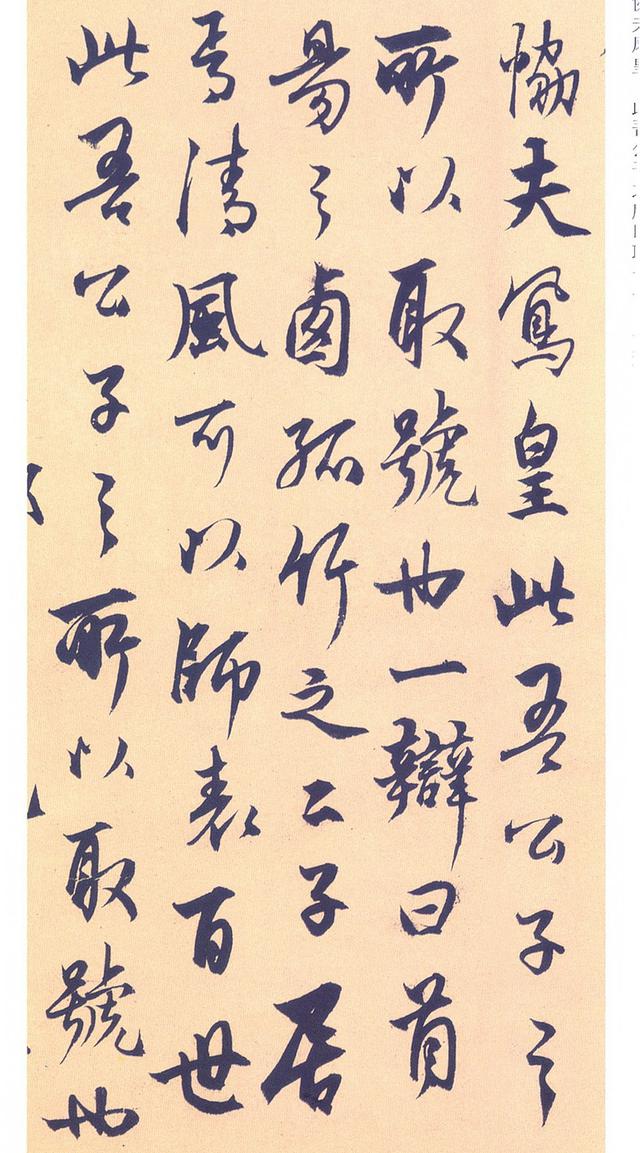 協夫鳳皇此吾公子之
所以取號也一辯曰首
昜之鹵孤竹之二子居
焉清風可以師表百世
此吾公子之所以取號也